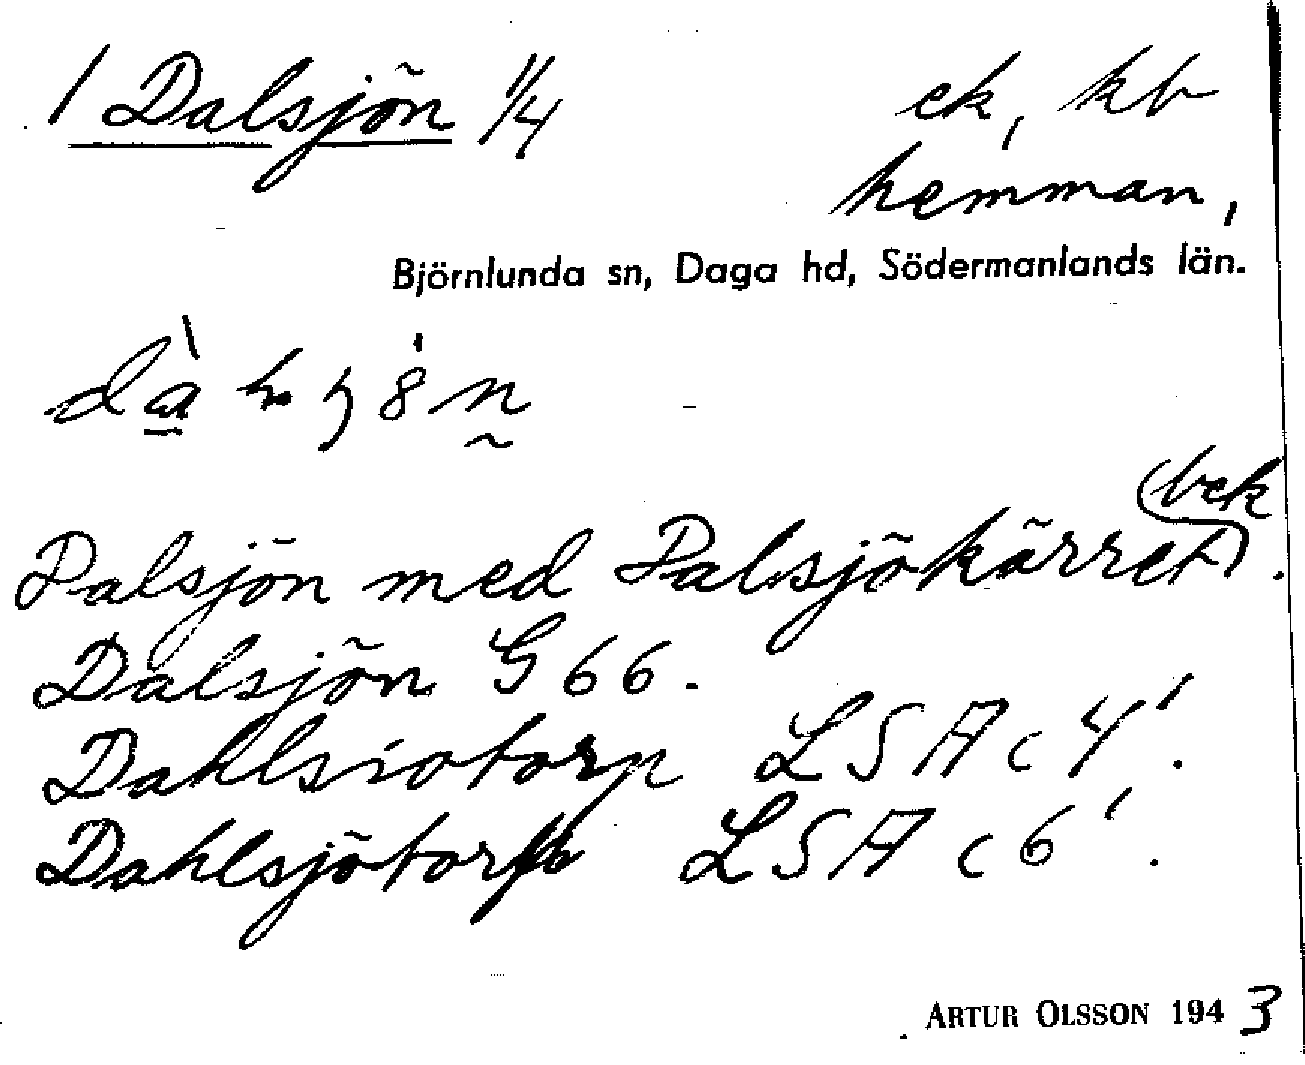 1 Dalsjön 1/4 ek, kb
hemman,
Björnlunda sn, Daga hd, Södermanlands län.
Dalsjön med Dalsjökärret (bek).
Dalsjön G 66.
Dahlsiotorp LSA c 4'.
Dahlsjötorp LSA c 6'.
ARTUR OLSSON 1943